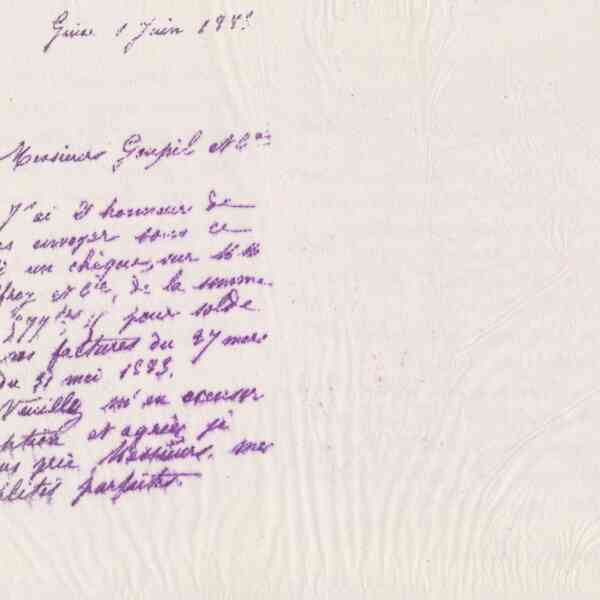 1 Juin
Messieurs Goupil et Cie
J'ai l'honneur de
envoyer sous ce
un chèque, sur
et Cie, de la somme
pour solde
vos factures du 27 mars
du 31 mai 1883.
Veuillez m'en accuser
et agréer je
prie, Messieurs, mes
parfaites.